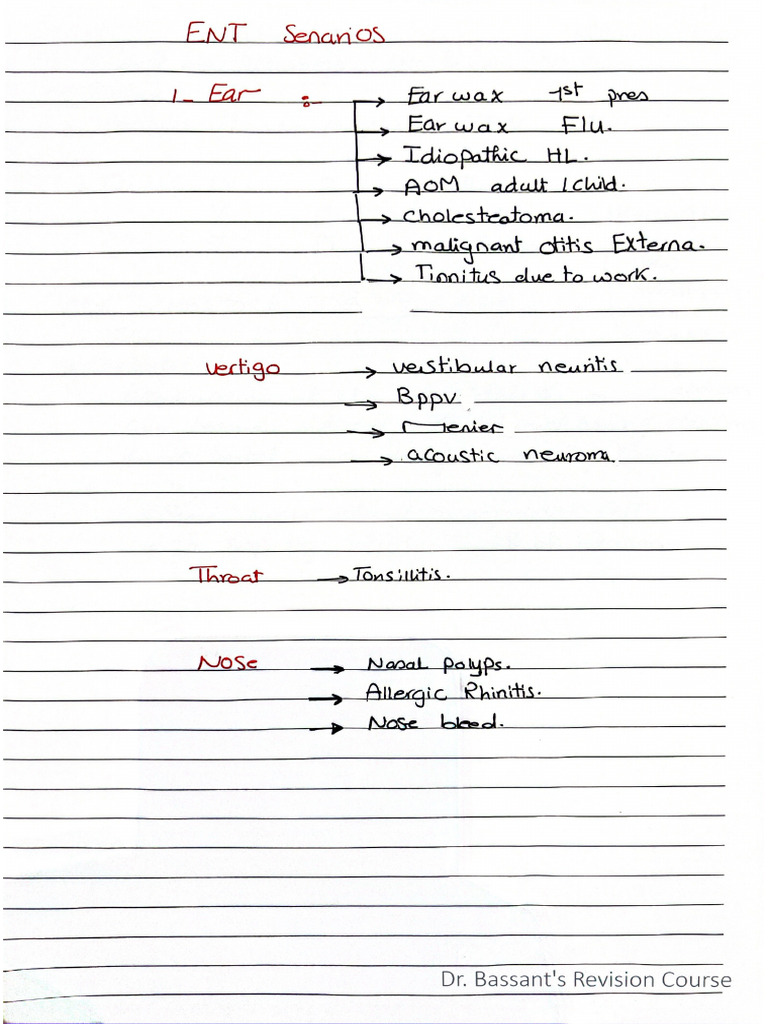 ENT Senarios
1_ Ear :- → Ear wax 1st pres
→ Ear wax Flu.
→ Idiopathic HL.
→ AOM adult / child.
→ cholesteatoma.
→ malignant otitis Externa.
→ Tinnitus due to work.
vertigo → vestibular neuritis
→ Bppv
→ Menier
→ acoustic neuroma
Throat → Tonsillitis.
Nose → Nasal polyps.
→ Allergic Rhinitis.
→ Nose bleed.
Dr. Bassant's Revision Course